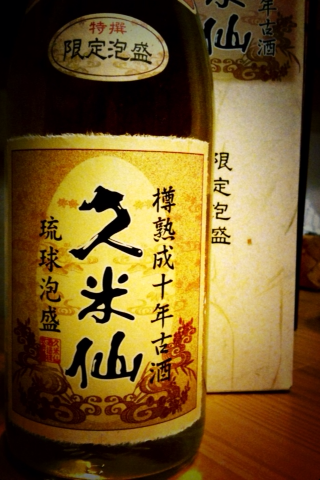 特撰
限定泡盛
樽熟成十年古酒
久米仙
琉球泡盛
年古酒
米仙
限定泡盛